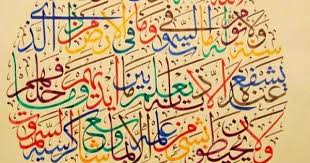 سنة ولا نوم له ما في السموات وما في الأرض من ذا الذي
يشفع عنده إلا بإذنه يعلم ما بين أيديهم وما خلفهم
ولا يحيطون بشيء من علمه إلا بما شاء وسع كرسيه السموات